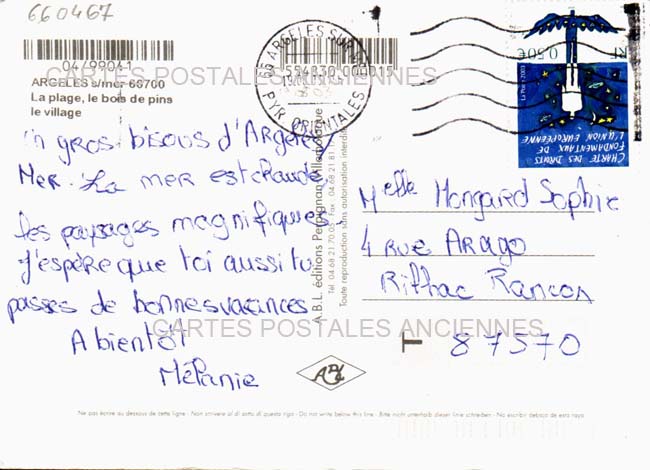 660467
04799041
ARGELES s/mer 66700
La plage, le bois de pins
le village
66 ARGELES SUR
PYR ORIENTALES
0,50€
RF
La Poste 2003
CHARTE DES DROITS
FONDAMENTAUX DE
L'UNION EUROPÉENNE
CARTES POSTALES ANCIENNES
Un gros bisous d'Argelès
Mer. La mer est chaude
les paysages magnifiques
J'espère que toi aussi tu
passes de bonnes vacances
A bientôt
Mélanie
A.B.L. éditions Perpignan Villelongue
Toute reproduction sans autorisation interdite
Melle Mongard Sophie
4 RUE ARAGO
Rilhac Rancon
87570
CARTES POSTALES ANCIENNES
Ne pas écrire au dessous de cette ligne - Non scrivere al di sotto di questa riga - Do not write below this line - Bitte nicht unterhalb dieser linie schreiben - No escribir debajo de esta raya